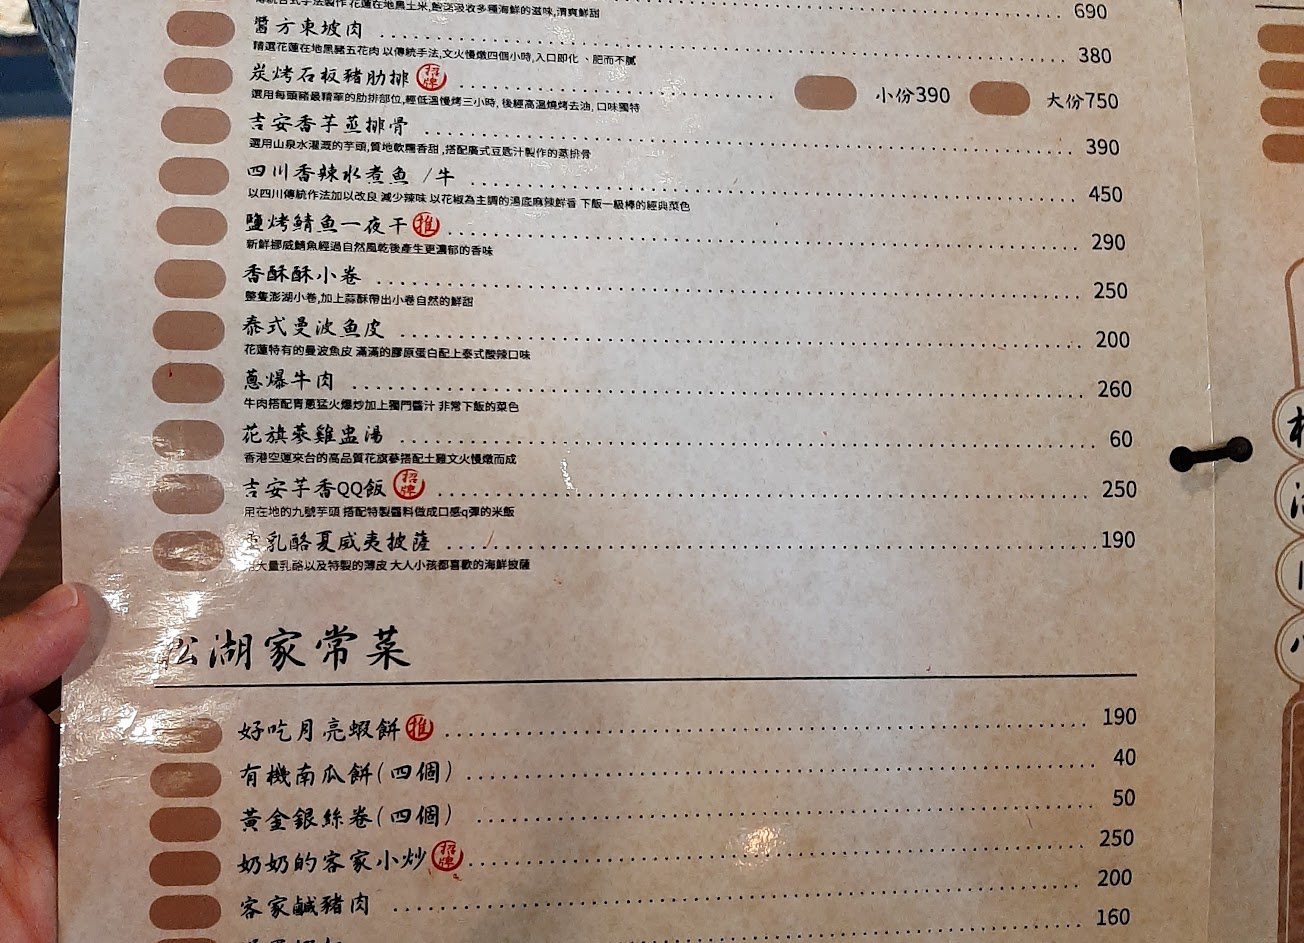 傳統台式手法製作 花蓮在地黑土米,飽足吸收多種海鮮的滋味,清爽鮮甜 690
醬方東坡肉 380
精選花蓮在地黑豬五花肉 以傳統手法,文火慢燉四個小時,入口即化、肥而不膩
炭烤石板豬肋排 招牌 小份390 大份750
選用每頭豬最精華的肋排部位,經低溫慢烤三小時, 後經高溫燒烤去油, 口味獨特
吉安香芋蒸排骨 390
選用山泉水灌溉的芋頭,質地軟糯香甜,搭配廣式豆匙汁製作的蒸排骨
四川香辣水煮魚 /牛 450
以四川傳統作法加以改良 減少辣味 以花椒為主調的湯底麻辣鮮香 下飯一級棒的經典菜色
鹽烤鯖魚一夜干 推 290
新鮮挪威鯖魚經過自然風乾後產生更濃郁的香味
香酥酥小卷 250
整隻澎湖小卷,加上蒜酥帶出小卷自然的鮮甜
泰式曼波魚皮 200
花蓮特有的曼波魚皮 滿滿的膠原蛋白配上泰式酸辣口味
蔥爆牛肉 260
牛肉搭配青蔥猛火爆炒加上獨門醬汁 非常下飯的菜色
花旗蔘雞盅湯 60
香港空運來台的高品質花旗蔘搭配土雞文火慢燉而成
吉安芋香QQ飯 招牌 250
用在地的九號芋頭 搭配特製醬料做成口感q彈的米飯
乳酪夏威夷披薩 190
大量乳酪以及特製的薄皮 大人小孩都喜歡的海鮮披薩
松湖家常菜
好吃月亮蝦餅 推 190
有機南瓜餅(四個) 40
黃金銀絲卷(四個) 50
奶奶的客家小炒 招牌 250
客家鹹豬肉 200
160